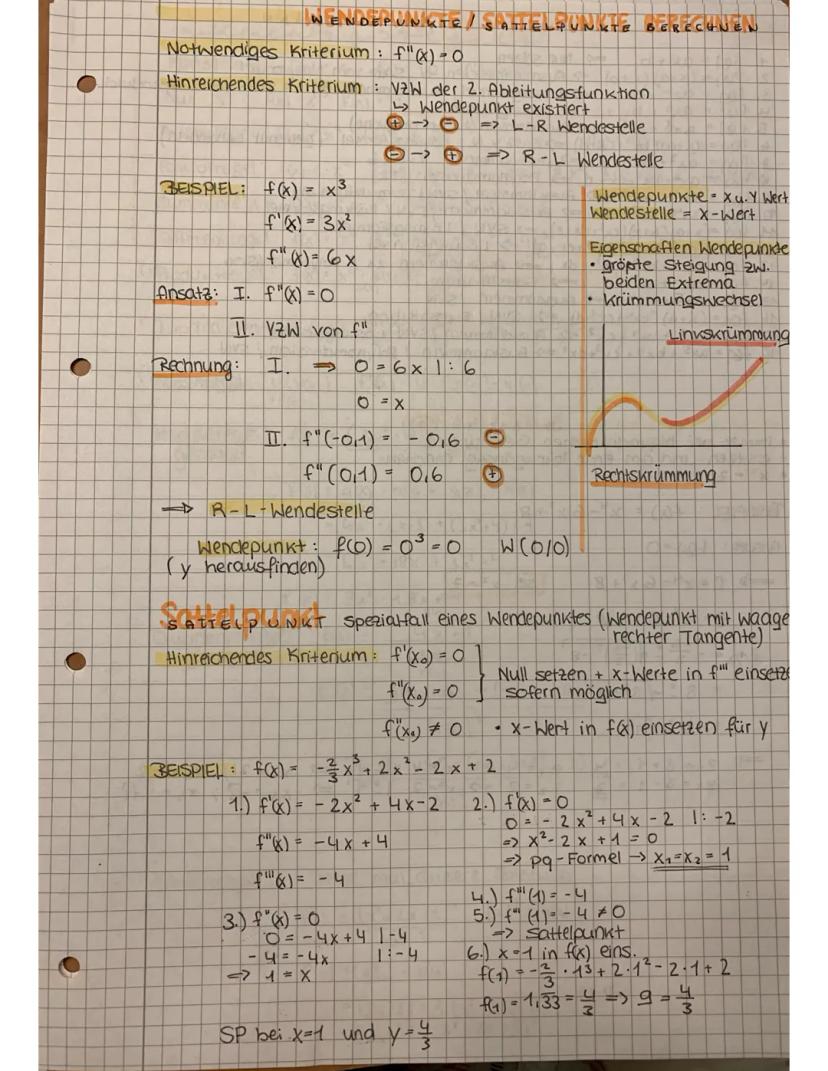 WENDEPUNKTE / SATTELPUNKTE BERECHNEN
Notwendiges Kriterium : f''(x) = 0
Hinreichendes Kriterium : VZW der 2. Ableitungsfunktion
↳ Wendepunkt existiert
⊕ → ⊖ => L-R Wendestelle
⊖ → ⊕ => R-L Wendestelle
BEISPIEL: f(x) = x³
f'(x) = 3x²
f''(x) = 6x
Ansatz: I. f''(x) = 0
II. VZW von f''
Rechnung: I. ⇒ 0 = 6x |: 6
0 = x
II. f''(-0,1) = - 0,6 ⊖
f''(0,1) = 0,6 ⊕
⇒ R-L-Wendestelle
Wendepunkt: f(0) = 0³ = 0 W(0/0)
(y herausfinden)
Wendepunkte = x u. Y Wert
Wendestelle = X-Wert
Eigenschaften Wendepunkte
• größte Steigung zw.
beiden Extrema
• Krümmungswechsel
Linkskrümmung
Rechtskrümmung
Sattelpunkt
SATTELPUNKT Spezialfall eines Wendepunktes (Wendepunkt mit waage
rechter Tangente)
Hinreichendes Kriterium: f'(x₀) = 0
f''(x₀) = 0
Null setzen + x-Werte in f''' einsetz
sofern möglich
f'''(x₀) ≠ 0 • x-Wert in f(x) einsetzen für y
BEISPIEL: f(x) = -2/3x³ + 2x² - 2x + 2
1.) f'(x) = - 2x² + 4x - 2
f''(x) = -4x + 4
f'''(x) = - 4
2.) f'(x) = 0
0 = - 2x² + 4x - 2 |: -2
=> x² - 2x + 1 = 0
=> pq-Formel → x₁ = x₂ = 1
3.) f''(x) = 0
0 = -4x + 4 |-4
- 4 = -4x |: -4
=> 1 = x
4.) f'''(1) = -4
5.) f'''(1) = - 4 ≠ 0
=> Sattelpunkt
6.) x=1 in f(x) eins.
f(1) = -2/3 · 1³ + 2·1² - 2·1 + 2
f(1) = 1,33 = 4/3 => y = 4/3
SP bei x=1 und y = 4/3